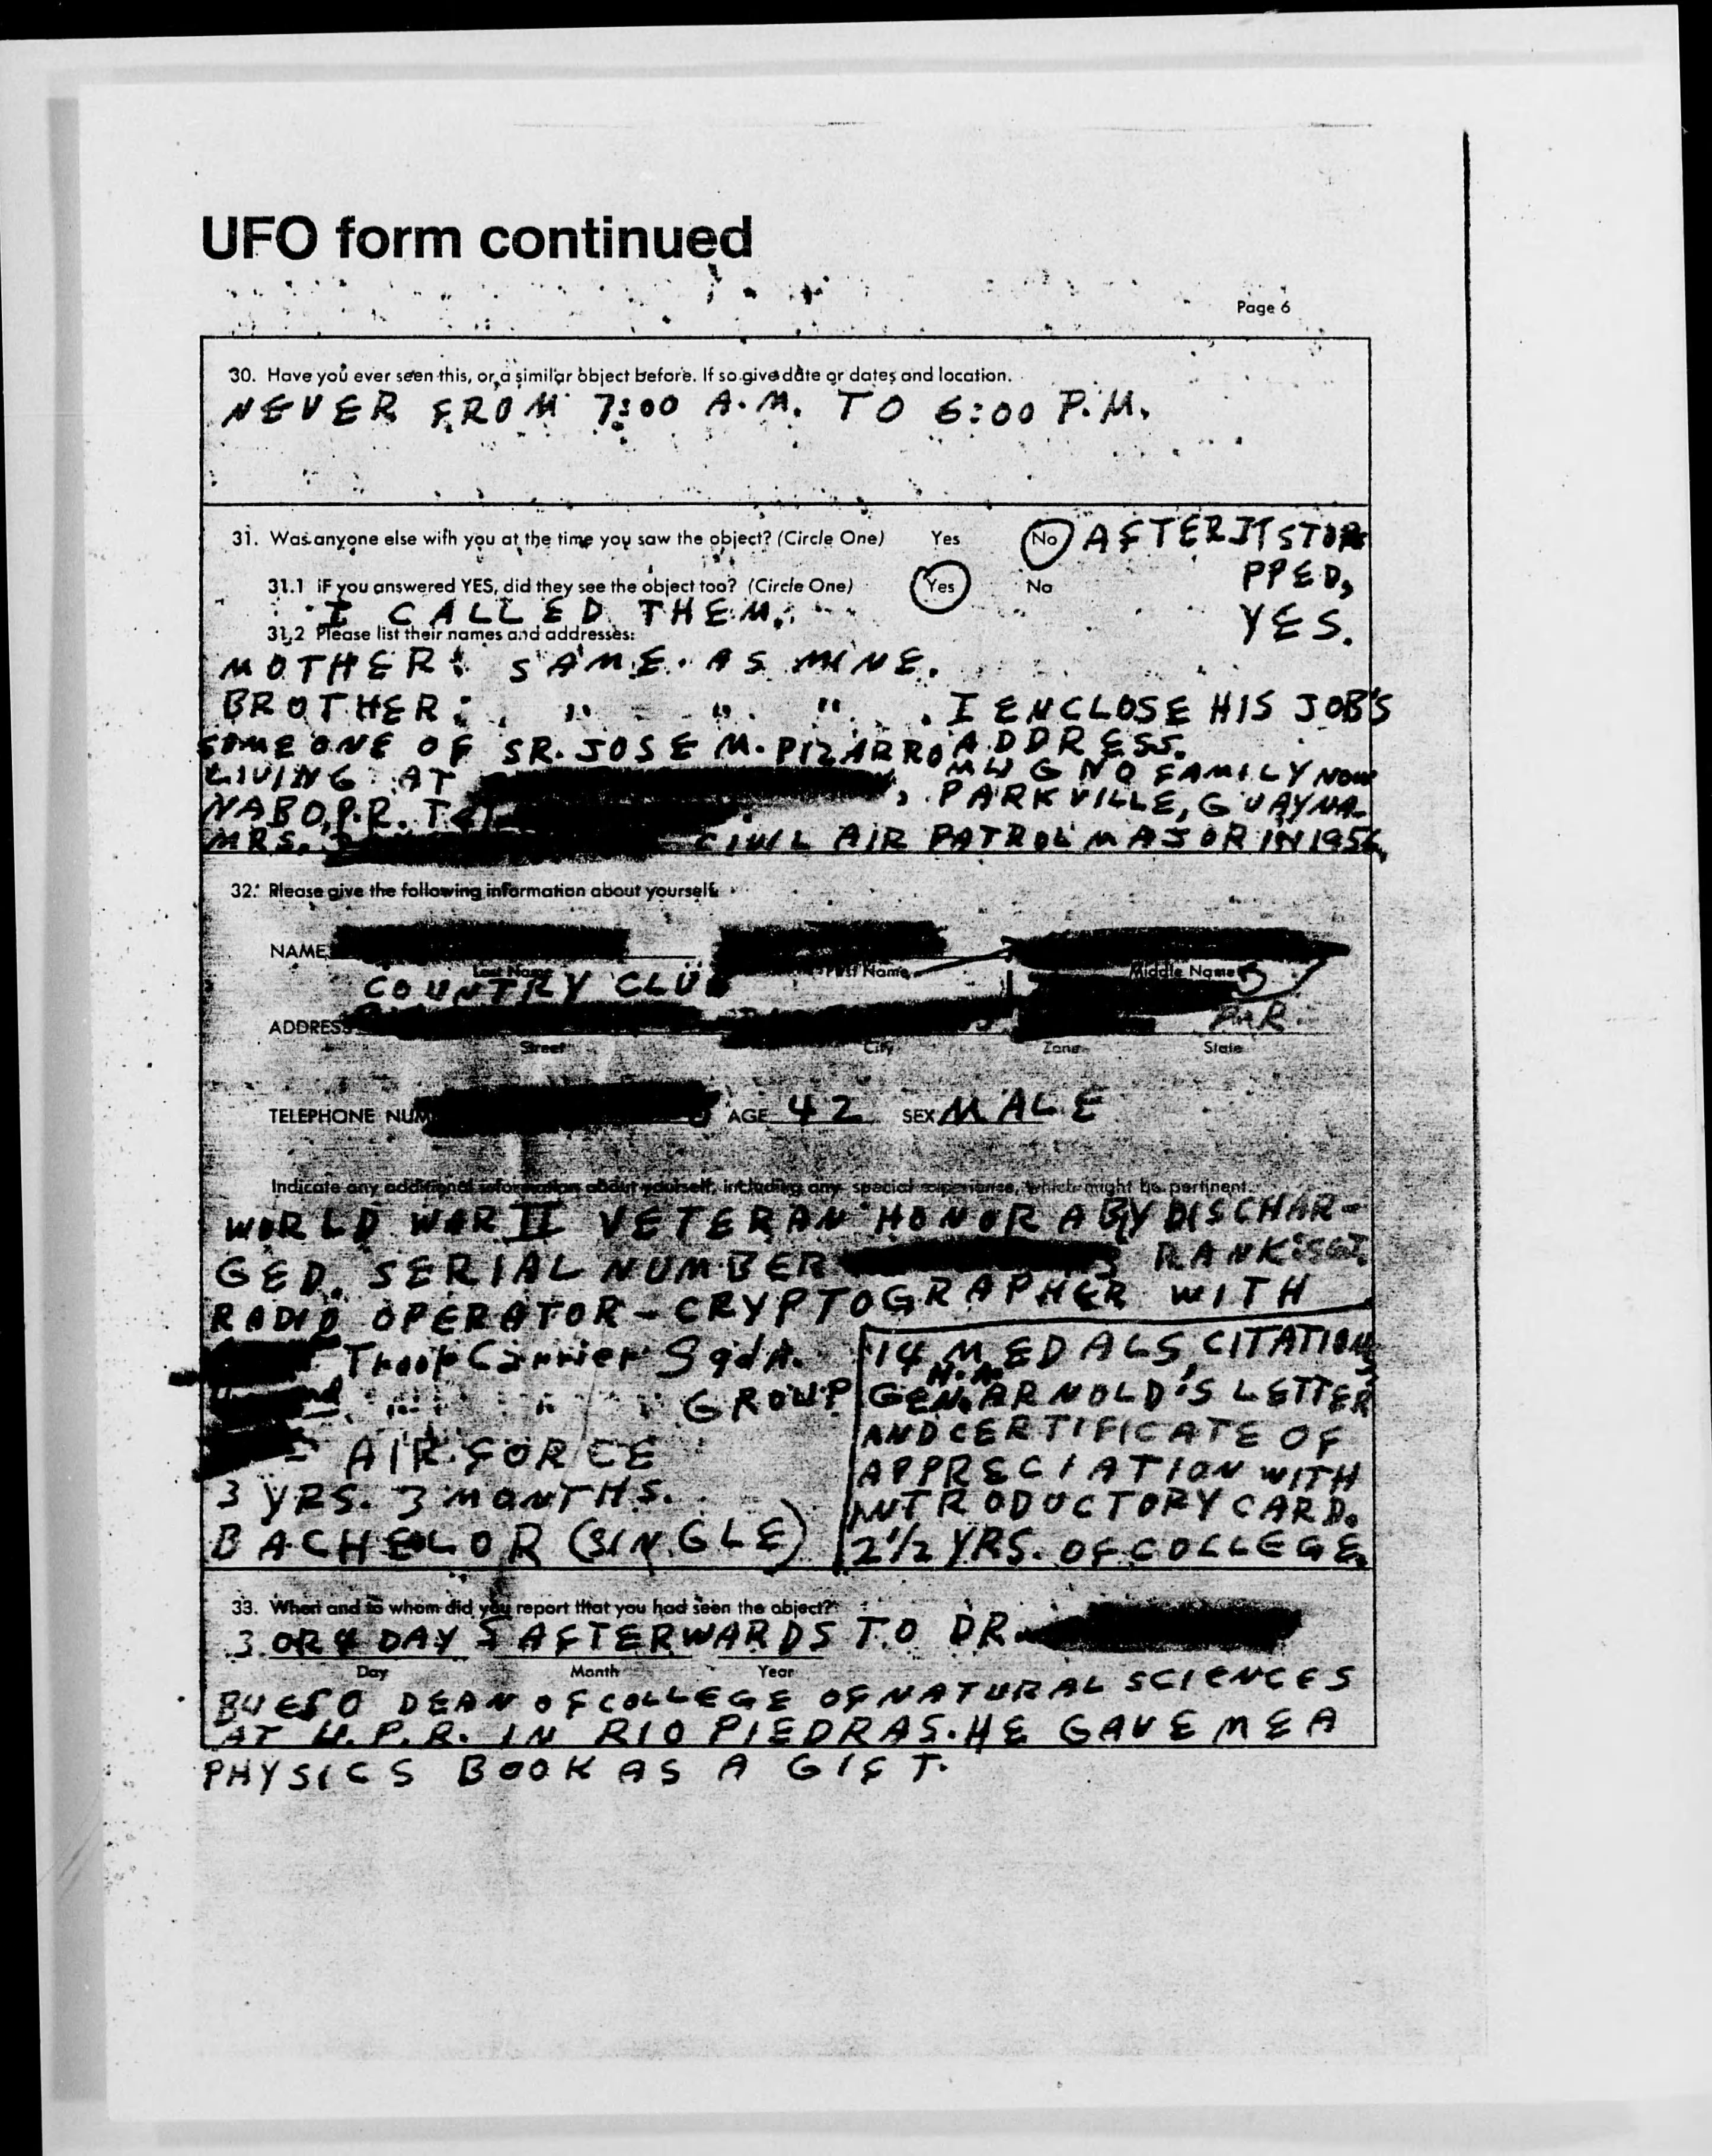 UFO form continued
Page 6
30. Have you ever seen this, or a similar object before. If so give date or dates and location.
NEVER FROM 7:00 A.M. TO 6:00 P.M.
31. Was anyone else with you at the time you saw the object? (Circle One) Yes No AFTER IT STOP
PPED,
31.1 IF you answered YES, did they see the object too? (Circle One) Yes No
I CALLED THEM. YES.
31.2 Please list their names and addresses:
MOTHER: SAME AS MINE.
BROTHER: " " " . I ENCLOSE HIS JOB'S
ADDRESS.
SOMEONE OF SR. JOSE M. PIZARRO FAMILY NOW
LIVING AT , PARKVILLE, GUAYNA-
NABO, P.R.
MRS. CIVIL AIR PATROL MAJOR IN 1956,
32. Please give the following information about yourself:
NAME
Last Name First Name Middle Name
COUNTRY CLU
ADDRESS
Street City Zone State
TELEPHONE NUM AGE 42 SEX MALE
Indicate any additional information about yourself, including any special experience, which might be pertinent.
WORLD WAR II VETERAN HONORABY DISCHAR-
GED. SERIAL NUMBER RANK: SGT.
RADIO OPERATOR - CRYPTOGRAPHER WITH
Troop Carrier Sqdn.
" " " GROUP
- AIR FORCE
3 YRS. 3 MONTHS.
BACHELOR (SINGLE)
14 MEDALS, CITATIONS
H.H.
GEN. ARNOLD'S LETTER
AND CERTIFICATE OF
APPRECIATION WITH
INTRODUCTORY CARD.
2 1/2 YRS. OF COLLEGE.
33. When and to whom did you report that you had seen the object?
3 OR 4 DAYS AFTERWARDS TO DR.
Day Month Year
BUESO DEAN OF COLLEGE OF NATURAL SCIENCES
AT U.P.R. IN RIO PIEDRAS. HE GAVE ME A
PHYSICS BOOK AS A GIFT.